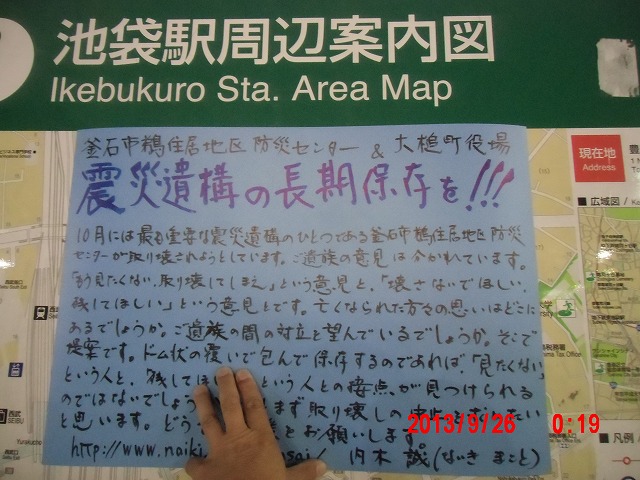 池袋駅周辺案内図
Ikebukuro Sta. Area Map
釜石市鵜住居地区防災センター & 大槌町役場
震災遺構の長期保存を!!!
10月には最も重要な震災遺構のひとつである釜石市鵜住居地区防災
センターが取り壊されようとしています。ご遺族の意見は分かれています。
「もう見たくない、取り壊してしまえ」という意見と、「壊さないでほしい、
残してほしい」という意見とです。亡くなられた方々の思いはどこに
あるでしょうか。ご遺族の間の対立を望んでいるでしょうか。そこで
提案です。ドーム状の覆いで包んで保存するのであれば「見たくない」
という人と、残してほ という人との接点が見つけられる
のではないでしょ まず取り壊しの
と思います。どう とお願いします。
http://www.naiki sai/ 内木 誠(ないき まこと)
現在地
Address
広域図
西武
SEIBU
凡例
2013/9/26 0:19